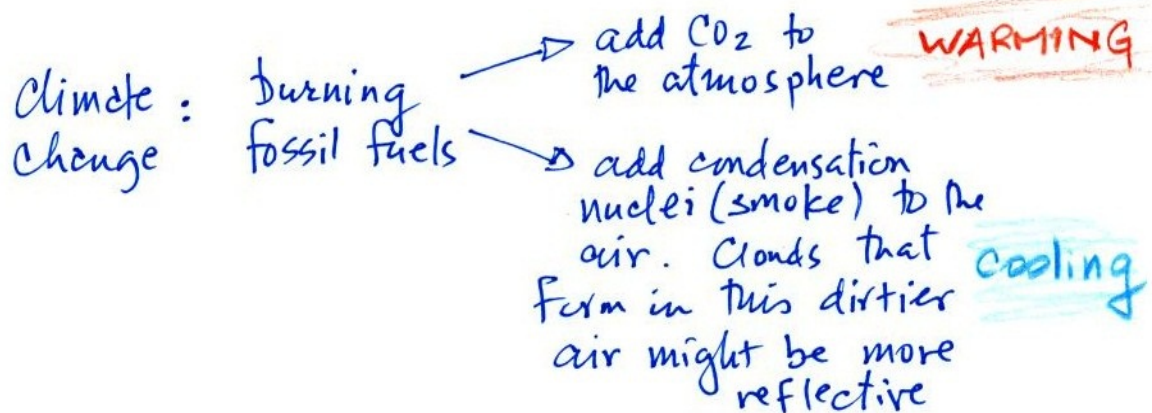 Climate :
change
burning
fossil fuels
add CO₂ to
the atmosphere
WARMING
add condensation
nuclei (smoke) to the
air. Clouds that
form in this dirtier
air might be more
reflective
cooling